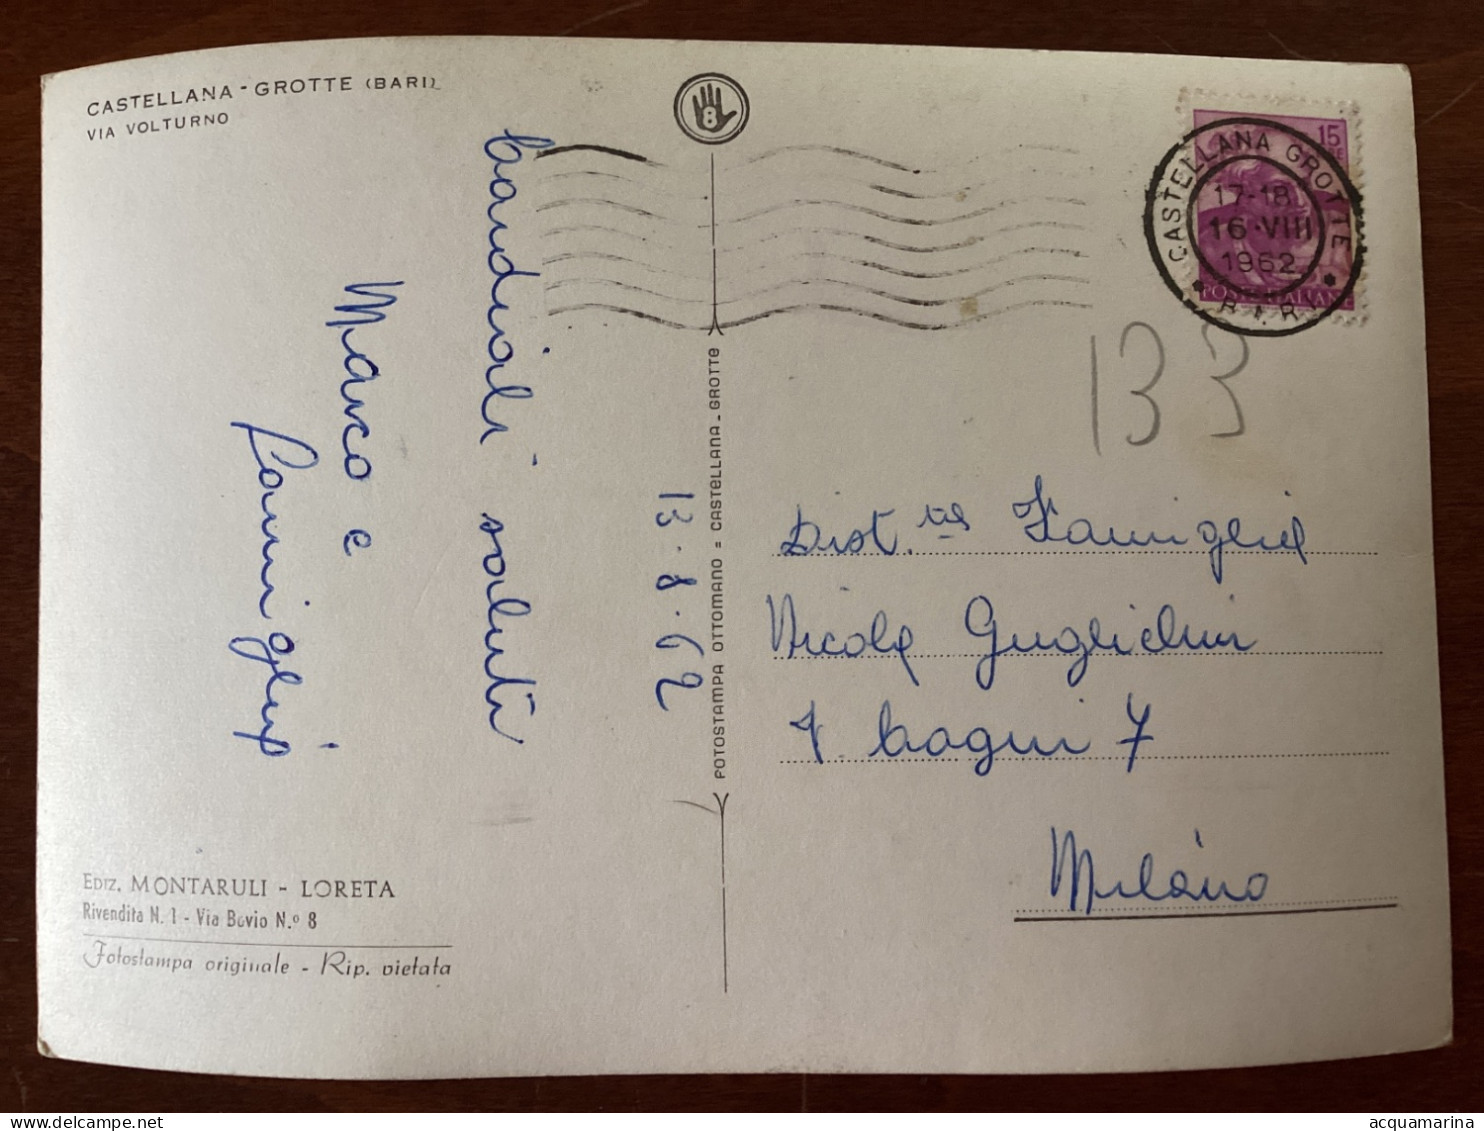 CASTELLANA - GROTTE (BARI)
VIA VOLTURNO
8
15
CASTELLANA GROTTE
17-18
16·VIII
1962
POSTE ITALIANE
133
cordiali saluti
Marco e
famiglia
13.8.62
POTOSTAMPA OTTOMANO = CASTELLANA-GROTTE
Dist. Famiglia
Nicola
7
Milano
EDIZ. MONTARULI - LORETA
Rivendita N. 1 - Via Bovio N.º 8
Fotostampa originale - Rip. vietata
acquamarina